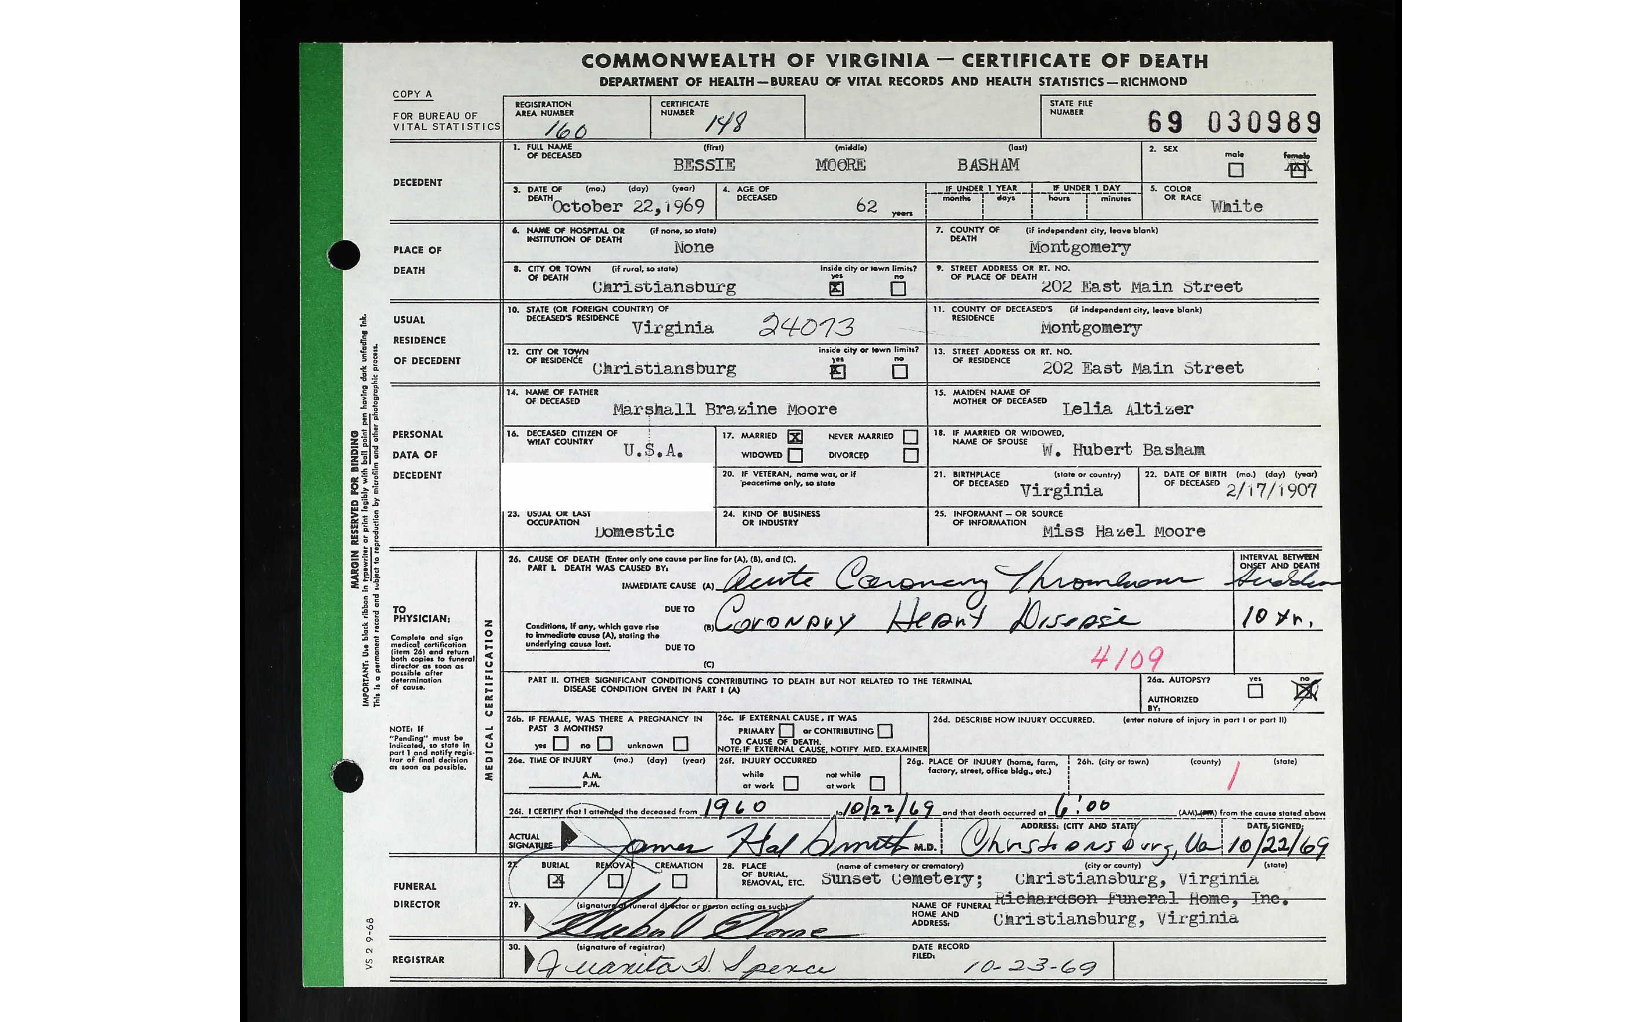 COMMONWEALTH OF VIRGINIA — CERTIFICATE OF DEATH
DEPARTMENT OF HEALTH—BUREAU OF VITAL RECORDS AND HEALTH STATISTICS—RICHMOND
COPY A
FOR BUREAU OF VITAL STATISTICS
REGISTRATION AREA NUMBER 160
CERTIFICATE NUMBER 148
STATE FILE NUMBER 69 030989
DECEDENT
1. FULL NAME OF DECEASED (first) (middle) (last)
BESSIE MOORE BASHAM
2. SEX male female
3. DATE OF DEATH (mo.) (day) (year) October 22, 1969
4. AGE OF DECEASED 62 years
IF UNDER 1 YEAR months days
IF UNDER 1 DAY hours minutes
5. COLOR OR RACE White
PLACE OF DEATH
6. NAME OF HOSPITAL OR INSTITUTION OF DEATH (if none, so state) None
7. COUNTY OF DEATH (if independent city, leave blank) Montgomery
8. CITY OR TOWN OF DEATH (if rural, so state) Christiansburg
inside city or town limits? yes no
9. STREET ADDRESS OR RT. NO. OF PLACE OF DEATH 202 East Main Street
USUAL RESIDENCE OF DECEDENT
10. STATE (OR FOREIGN COUNTRY) OF DECEASED'S RESIDENCE Virginia 24073
11. COUNTY OF DECEASED'S RESIDENCE (if independent city, leave blank) Montgomery
12. CITY OR TOWN OF RESIDENCE Christiansburg
inside city or town limits? yes no
13. STREET ADDRESS OR RT. NO. OF RESIDENCE 202 East Main Street
PERSONAL DATA OF DECEDENT
14. NAME OF FATHER OF DECEASED Marshall Brazine Moore
15. MAIDEN NAME OF MOTHER OF DECEASED Lelia Altizer
16. DECEASED CITIZEN OF WHAT COUNTRY U.S.A.
17. MARRIED NEVER MARRIED
WIDOWED DIVORCED
18. IF MARRIED OR WIDOWED, NAME OF SPOUSE W. Hubert Basham
20. IF VETERAN, name war, or if peacetime only, so state
21. BIRTHPLACE OF DECEASED (state or country) Virginia
22. DATE OF BIRTH OF DECEASED (mo.) (day) (year) 2/17/1907
23. USUAL OR LAST OCCUPATION Domestic
24. KIND OF BUSINESS OR INDUSTRY
25. INFORMANT — OR SOURCE OF INFORMATION Miss Hazel Moore
MARGIN RESERVED FOR BINDING
IMPORTANT: Use black ribbon in typewriter or print legibly with ball point pen having dark unfading ink.
This is a permanent record and subject to reproduction by microfilm and other photographic process.
TO PHYSICIAN:
Complete and sign medical certification (item 26) and return both copies to funeral director as soon as possible after determination of cause.
NOTE: IF "Pending" must be indicated, so state in part I and notify registrar of final decision as soon as possible.
MEDICAL CERTIFICATION
26. CAUSE OF DEATH (Enter only one cause per line for (A), (B), and (C).
PART I. DEATH WAS CAUSED BY:
INTERVAL BETWEEN ONSET AND DEATH
IMMEDIATE CAUSE (A) Acute Coronary Thrombosis Sudden
DUE TO
(B) Coronary Heart Disease 10 yr.
Conditions, if any, which gave rise to immediate cause (A), stating the underlying cause last.
DUE TO
(C)
4109
PART II. OTHER SIGNIFICANT CONDITIONS CONTRIBUTING TO DEATH BUT NOT RELATED TO THE TERMINAL DISEASE CONDITION GIVEN IN PART I (A)
26a. AUTOPSY? yes no
AUTHORIZED BY:
26b. IF FEMALE, WAS THERE A PREGNANCY IN PAST 3 MONTHS?
yes no unknown
26c. IF EXTERNAL CAUSE, IT WAS
PRIMARY or CONTRIBUTING
TO CAUSE OF DEATH.
NOTE: IF EXTERNAL CAUSE, NOTIFY MED. EXAMINER
26d. DESCRIBE HOW INJURY OCCURRED. (enter nature of injury in part I or part II)
26e. TIME OF INJURY (mo.) (day) (year)
A.M.
P.M.
26f. INJURY OCCURRED
while at work not while at work
26g. PLACE OF INJURY (home, farm, factory, street, office bldg., etc.)
26h. (city or town) (county) (state)
26i. I CERTIFY that I attended the deceased from 1960 to 10/22/69 and that death occurred at 6:00 (AM) (PM) from the cause stated above
ACTUAL SIGNATURE James Hal Smith M.D.
ADDRESS: (CITY AND STATE) Christiansburg, Va
DATE SIGNED: 10/22/69
FUNERAL DIRECTOR
27. BURIAL REMOVAL CREMATION
28. PLACE OF BURIAL, REMOVAL, ETC. (name of cemetery or crematory) (city or county) (state)
Sunset Cemetery; Christiansburg, Virginia
29. (signature of funeral director or person acting as such)
NAME OF FUNERAL HOME AND ADDRESS: Richardson Funeral Home, Inc.
Christiansburg, Virginia
REGISTRAR
30. (signature of registrar) Juanita H. Spence
DATE RECORD FILED: 10-23-69
VS 2 9-68